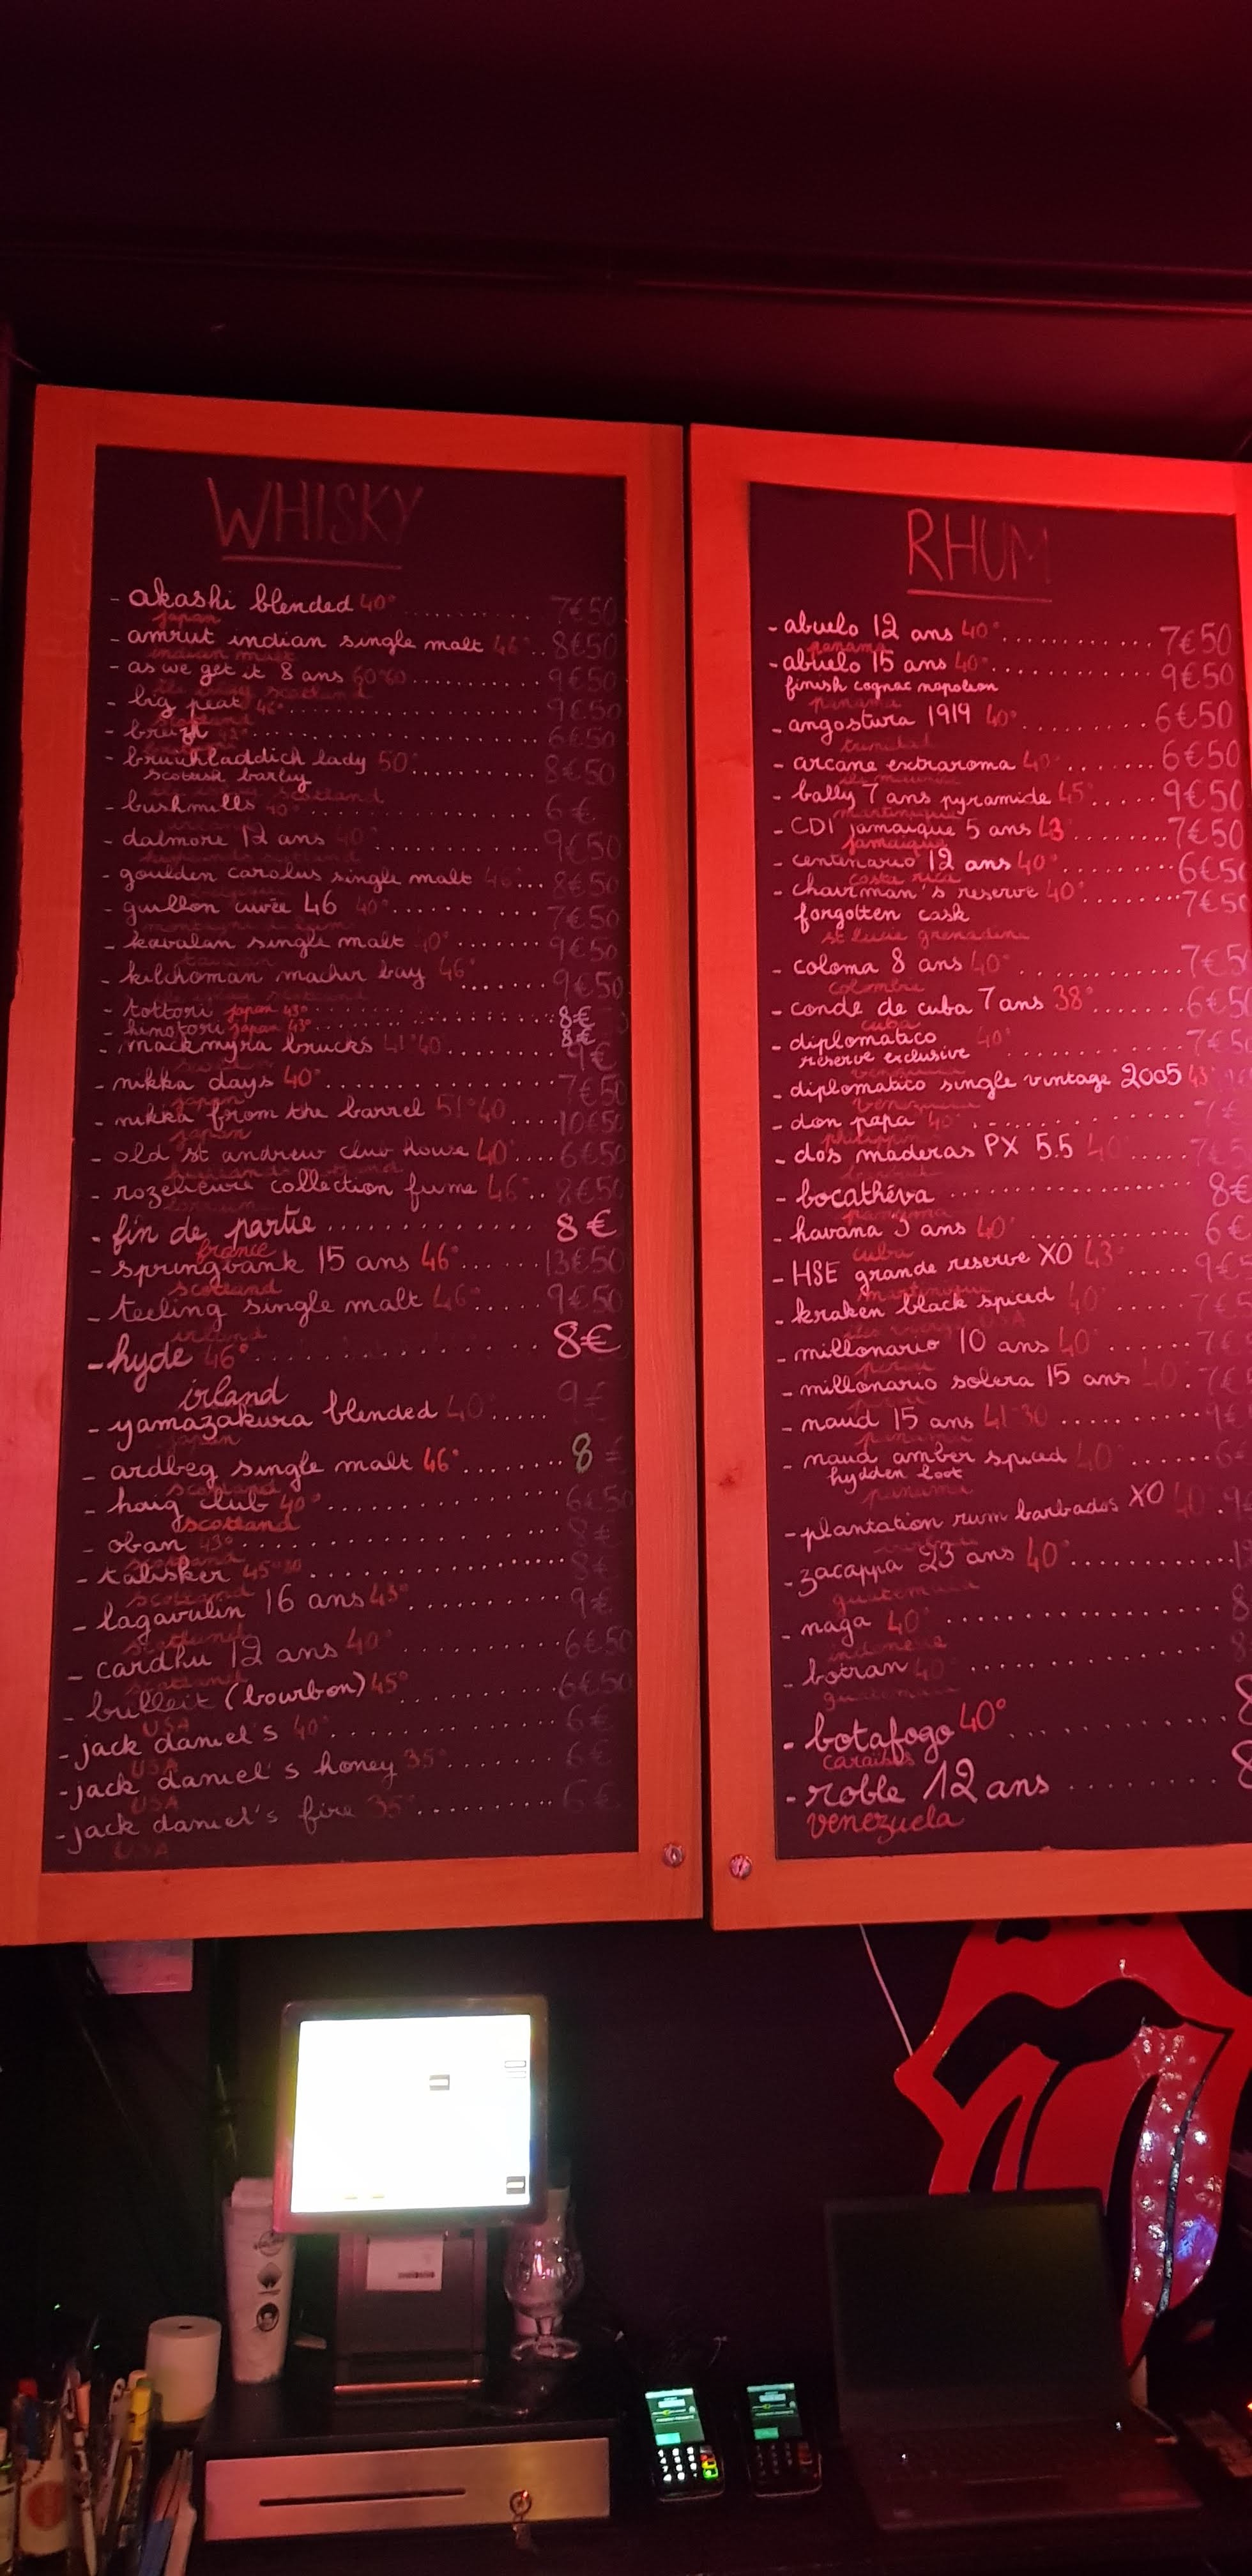 WHISKY
- akashi blended 40° 7€50
japan
- amrut indian single malt 46° 8€50
indian malt
- as we get it 8 ans 60°60 9€50
scotland
- big peat 46° 9€50
scotland
- breizh 6€50
- bruichladdich lady 50° 8€50
scotish barley
scotland
- bushmills 40° 6€
- dalmore 12 ans 40° 9€50
- goulden carolus single malt 46° 8€50
- guillon cuvée 46 40° 7€50
- kavalan single malt 40° 9€50
taiwan
- kilchoman machir bay 46° 9€50
scotland
- tottori japan 43° 8€
- hinotori japan 43° 8€
- mackmyra brucks 41°40 9€
- nikka days 40° 7€50
japan
- nikka from the barrel 51°40 10€50
japan
- old st andrew club house 40° 6€50
- rozelieure collection fume 46° 8€50
- fin de partie 8€
france
- springbank 15 ans 46° 13€50
scotland
- teeling single malt 46° 9€50
irland
- hyde 46° 8€
irland
- yamazakura blended 40° 9€
japan
- ardbeg single malt 46° 8€
scotland
- haig club 40° 6€50
scotland
- oban 43° 8€
scotland
- talisker 45° 8€
scotland
- lagavulin 16 ans 43° 9€
scotland
- cardhu 12 ans 40° 6€50
scotland
- bulleit (bourbon) 45° 6€50
USA
- jack daniel's 40° 6€
USA
- jack daniel's honey 35° 6€
USA
- jack daniel's fire 35° 6€
USA
RHUM
- abuelo 12 ans 40° 7€50
panama
- abuelo 15 ans 40° 9€50
finish cognac napoleon
panama
- angostura 1919 40° 6€50
trinidad
- arcane extraroma 40° 6€50
ile maurice
- bally 7 ans pyramide 45° 9€50
martinique
- CDI jamaique 5 ans 43 7€50
jamaique
- centenario 12 ans 40° 6€50
costa rica
- chairman's reserve 40° 7€50
forgotten cask
st lucie grenadine
- coloma 8 ans 40° 7€5
colombie
- conde de cuba 7 ans 38° 6€5
cuba
- diplomatico 40° 7€5
reserve exclusive
- diplomatico single vintage 2005 43°
venezuela
- don papa 40° 7€
philippines
- dos maderas PX 5.5 40° 7€5
- bocathéva 8€
panama
- havana 3 ans 40° 6€
cuba
- HSE grande reserve XO 43° 9€5
martinique
- kraken black spiced 40° 7€5
- millonario 10 ans 40° 7€
perou
- millonario solera 15 ans 40° 7€
- naud 15 ans 41°30 9€
panama
- naud amber spiced 40° 6€
hydden loot
panama
- plantation rum barbados XO 40° 9
- zacappa 23 ans 40°
guatemala
- naga 40° 8
indonesie
- botran 40° 8
guatemala
- botafogo 40° 8
caraibes
- roble 12 ans 8
venezuela